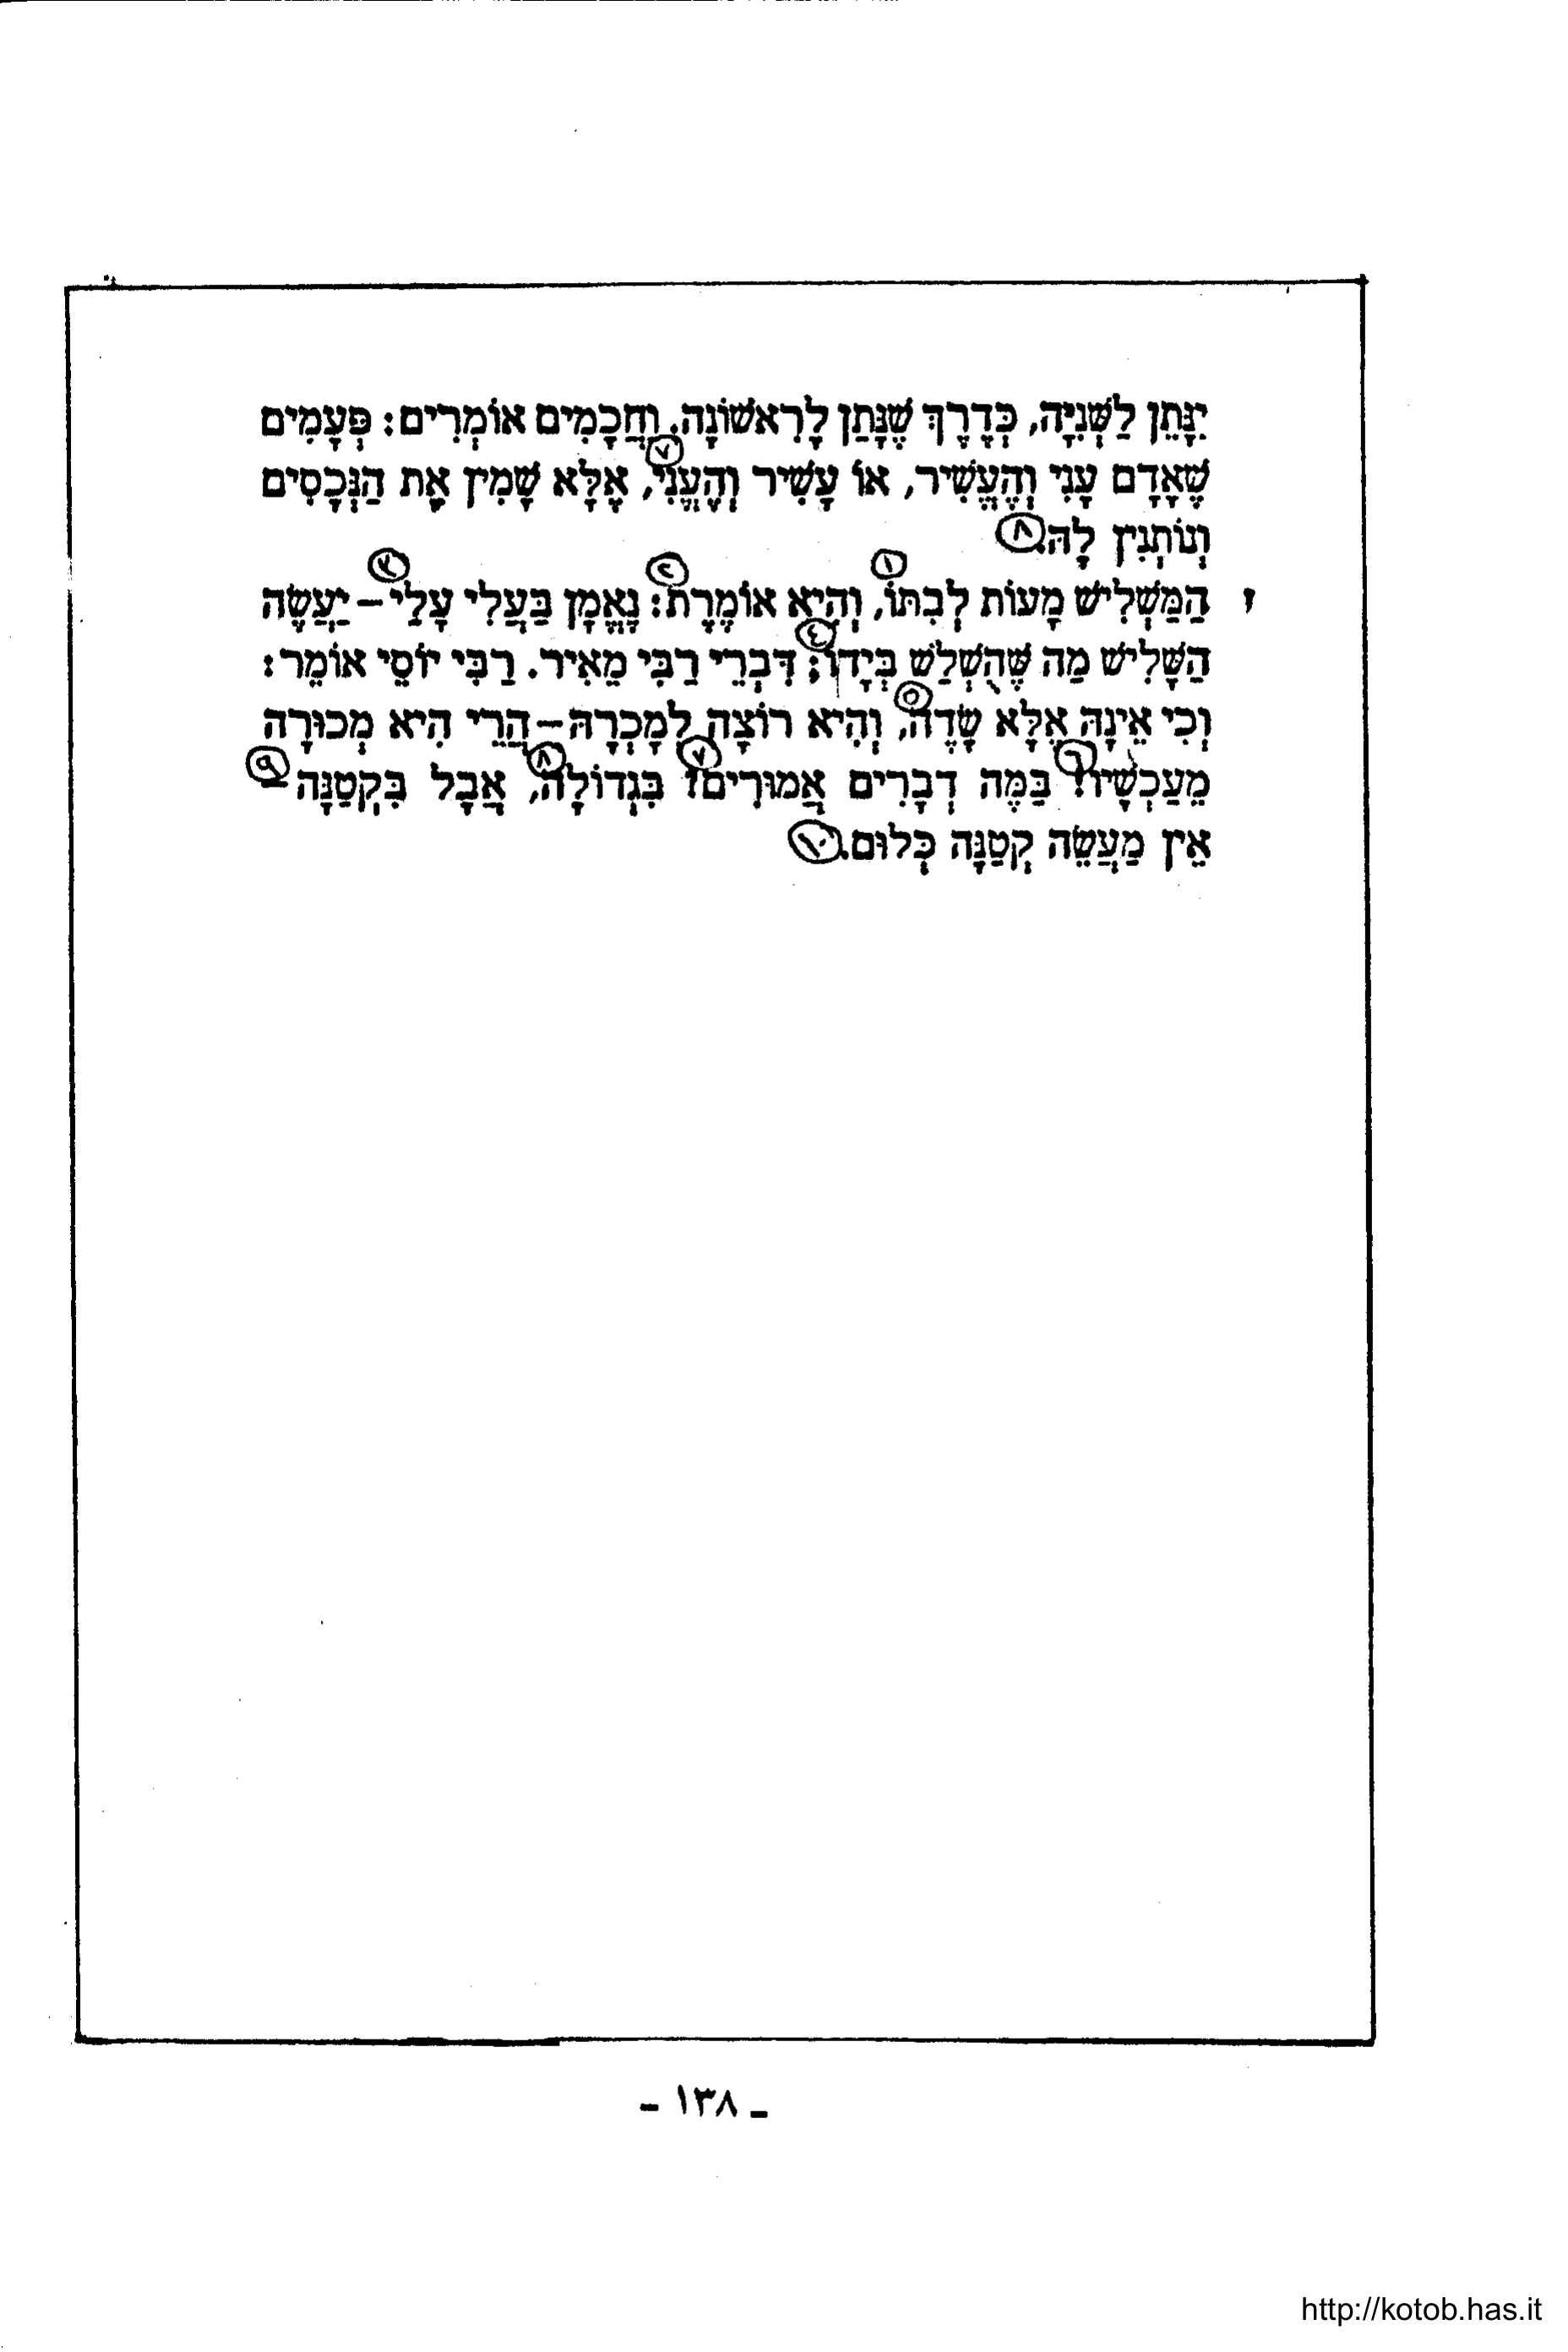 יִנָּתֵן לַשְּׁנִיָּה, כְּדֶרֶךְ שֶׁנָּתַן לָרִאשׁוֹנָה. וַחֲכָמִים אוֹמְרִים: פְּעָמִים
שֶׁאָדָם עָנִי וְהֶעֱשִׁיר, אוֹ עָשִׁיר וְהֶעֱנִי, (٧) אֶלָּא שָׁמִין אֶת הַנְּכָסִים
וְנוֹתְנִין לָהּ. (٨)
ז הַמַּשְׁלִישׁ מָעוֹת לְבִתּוֹ, (١) וְהִיא אוֹמֶרֶת: (٢) נֶאֱמָן בַּעֲלִי עָלַי – (٣) יַעֲשֶׂה
הַשָּׁלִישׁ מַה שֶּׁהֻשְׁלַשׁ בְּיָדוֹ; (٤) דִּבְרֵי רַבִּי מֵאִיר. רַבִּי יוֹסֵי אוֹמֵר:
וְכִי אֵינָהּ אֶלָּא שָׂדֶה, (٥) וְהִיא רוֹצָה לְמָכְרָהּ – הֲרֵי הִיא מְכוּרָה
מֵעַכְשָׁיו! (٦) בַּמֶּה דְבָרִים אֲמוּרִים? (٧) בִּגְדוֹלָה, (٨) אֲבָל בִּקְטַנָּה – (٩)
אֵין מַעֲשֵׂה קְטַנָּה כְּלוּם. (١٠)
- ١٣٨ -
http://kotob.has.it